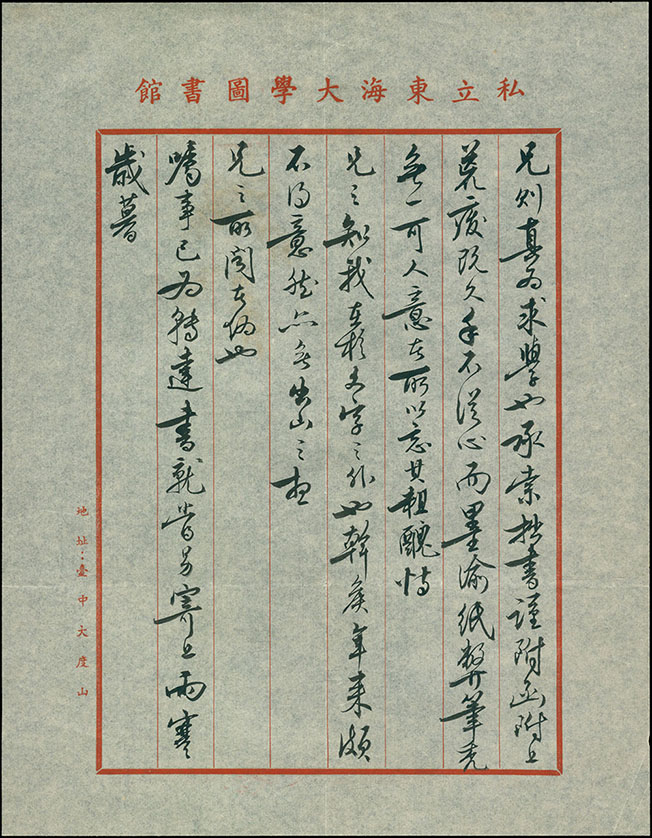 私立東海大學圖書館
兄則真為求學也承索拙書謹附函附上
荒廢既久手不從心而墨渝紙弊筆禿
無一可人意者所以忘其粗醜恃
兄之知我在於文字之外也幹侯年來頗
不得意然亦無出山之想
兄之所聞者偽也
囑事已為轉達書就當另寄上雨寒
歲暮
地址:臺中大度山